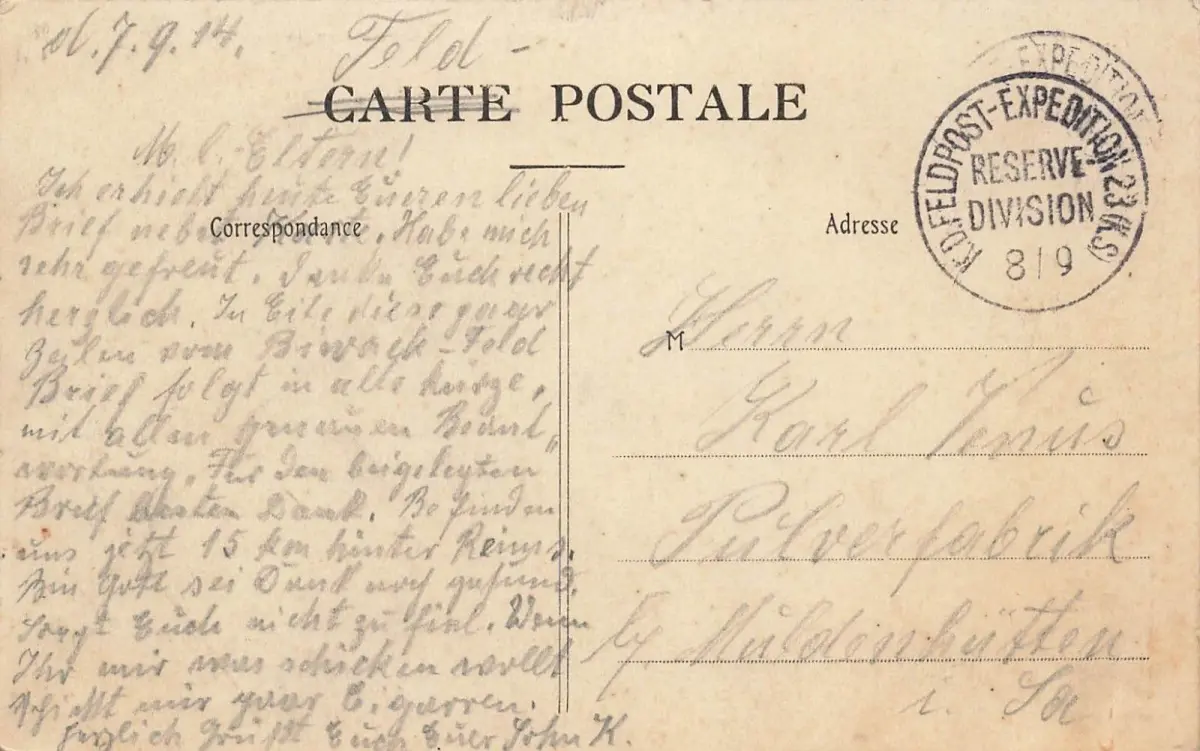 d. 7. 9. 14.
Feld-
CARTE POSTALE
M. l. Eltern!
Ich erhielt heute Eueren lieben
Brief nebst Karte. Habe mich
sehr gefreut. Danke Euch recht
herzlich. In Eile diese paar
Zeilen vom Biwack-Feld
Brief folgt in alle kürze,
mit allen genauen Beant„
wortung. Für den beigelegten
Brief besten Dank. Befinden
uns jetzt 15 km hinter Reims.
Bin Gott sei Dank noch gesund.
Sorgt Euch nicht zu fiel. Wenn
Ihr mir was schicken wollt
schickt mir paar Cigarren.
Herzlich Grüßt Euch Euer Sohn K.
Correspondance
Adresse
K.D. FELDPOST-EXPEDITION 23 (K.S)
RESERVE-
DIVISION
8/9
EXPEDITION
M Herrn
Karl Venus
Pulverfabrik
Muldenhütten
i. Sa